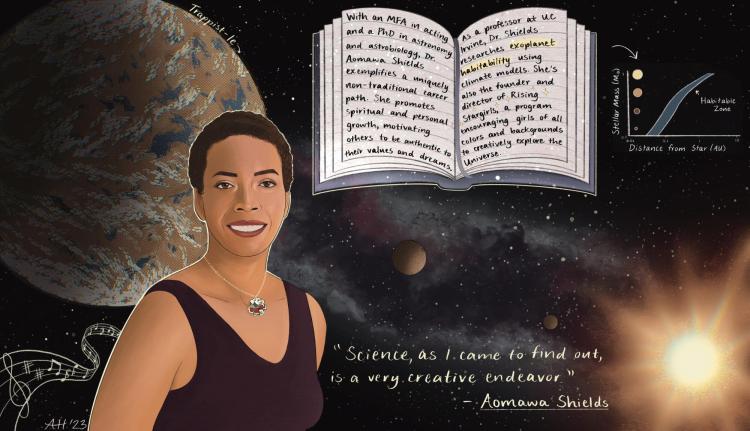 Trappist 1e
With an MFA in acting
and a PhD in astronomy
and astrobiology, Dr.
Aomawa Shields
exemplifies a uniquely
non-traditional career
path. She promotes
spiritual and personal
growth, motivating
others to be authentic to
their values and dreams.
As a professor at UC
Irvine, Dr. Shields
researches exoplanet
habitability using
climate models. She's
also the founder and
director of Rising
Stargirls, a program
encouraging girls of all
colors and backgrounds
to creatively explore the
Universe.
Stellar Mass (M☉)
Habitable
Zone
Distance from Star (AU)
"Science, as I came to find out,
is a very creative endeavor"
- Aomawa Shields
AH '23